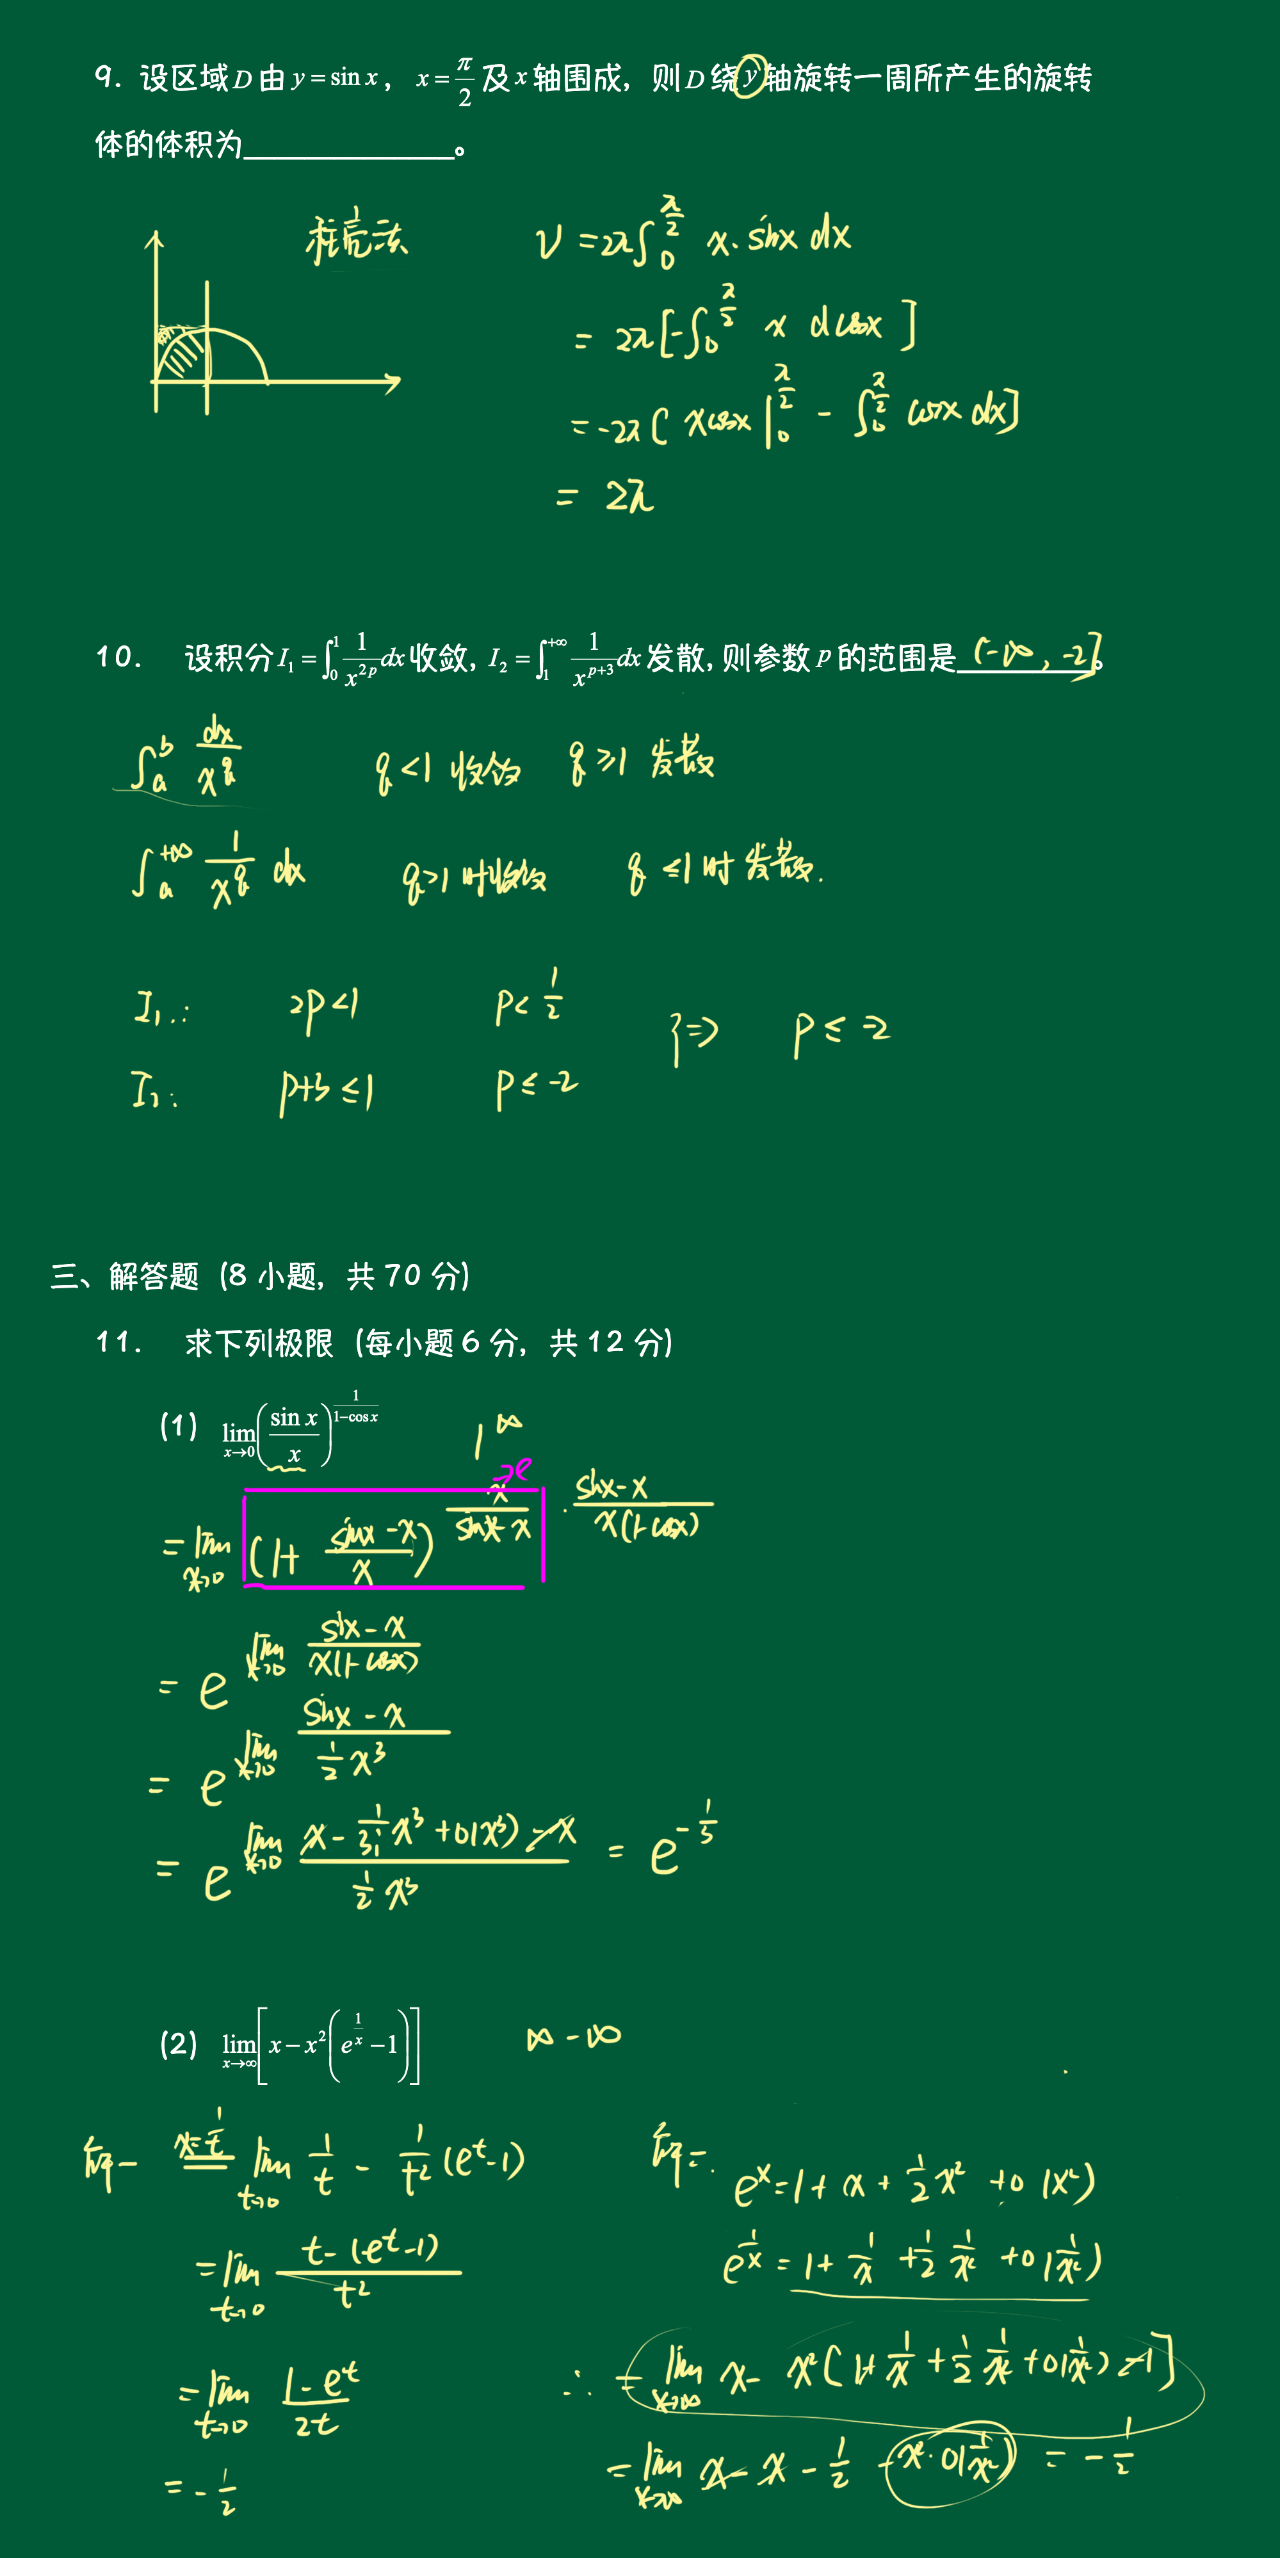 9. 设区域 D 由 y = sin x， x = π/2 及 x 轴围成，则 D 绕 y 轴旋转一周所产生的旋转
体的体积为______________。
柱壳法
V = 2π∫_0^{π/2} x · sinx dx
= 2π[-∫_0^{π/2} x dcosx]
= -2π[xcosx|_0^{π/2} - ∫_0^{π/2} cosx dx]
= 2π
10. 设积分 I₁ = ∫_0^1 1/x^{2p} dx 收敛, I₂ = ∫_1^{+∞} 1/x^{p+3} dx 发散, 则参数 p 的范围是 (-∞, -2]。
∫_a^b dx/x^q q<1 收敛 q≥1 发散
∫_a^{+∞} 1/x^q dx q>1时收敛 q≤1时发散.
I₁: 2p<1 p<1/2
} ⇒ p ≤ -2
I₂: p+3≤1 p≤-2
三、解答题（8 小题，共 70 分）
11. 求下列极限（每小题 6 分，共 12 分）
(1) lim_{x→0} (sin x / x)^{1/(1-cos x)} 1^∞
→e
= lim_{x→0} (1+ (sinx-x)/x)^{x/(sinx-x) · (sinx-x)/(x(1-cosx))}
= e^{lim_{x→0} (sinx-x)/(x(1-cosx))}
= e^{lim_{x→0} (sinx-x)/(1/2 x³)}
= e^{lim_{x→0} (x - 1/3! x³ + o(x³) - x)/(1/2 x³)} = e^{-1/3}
(2) lim_{x→∞} [x - x²(e^{1/x} - 1)] ∞-∞
解一 x=1/t lim_{t→0} 1/t - 1/t² (e^t-1)
= lim_{t→0} (t-(e^t-1))/t²
= lim_{t→0} (1-e^t)/2t
= -1/2
解二.
e^x = 1+x+1/2 x² +o(x²)
e^{1/x} = 1+ 1/x + 1/2 1/x² +o(1/x²)
∴ = lim_{x→∞} x - x²[1+ 1/x + 1/2 1/x² +o(1/x²) -1]
= lim_{x→∞} x - x - 1/2 - x²·o(1/x²) = -1/2